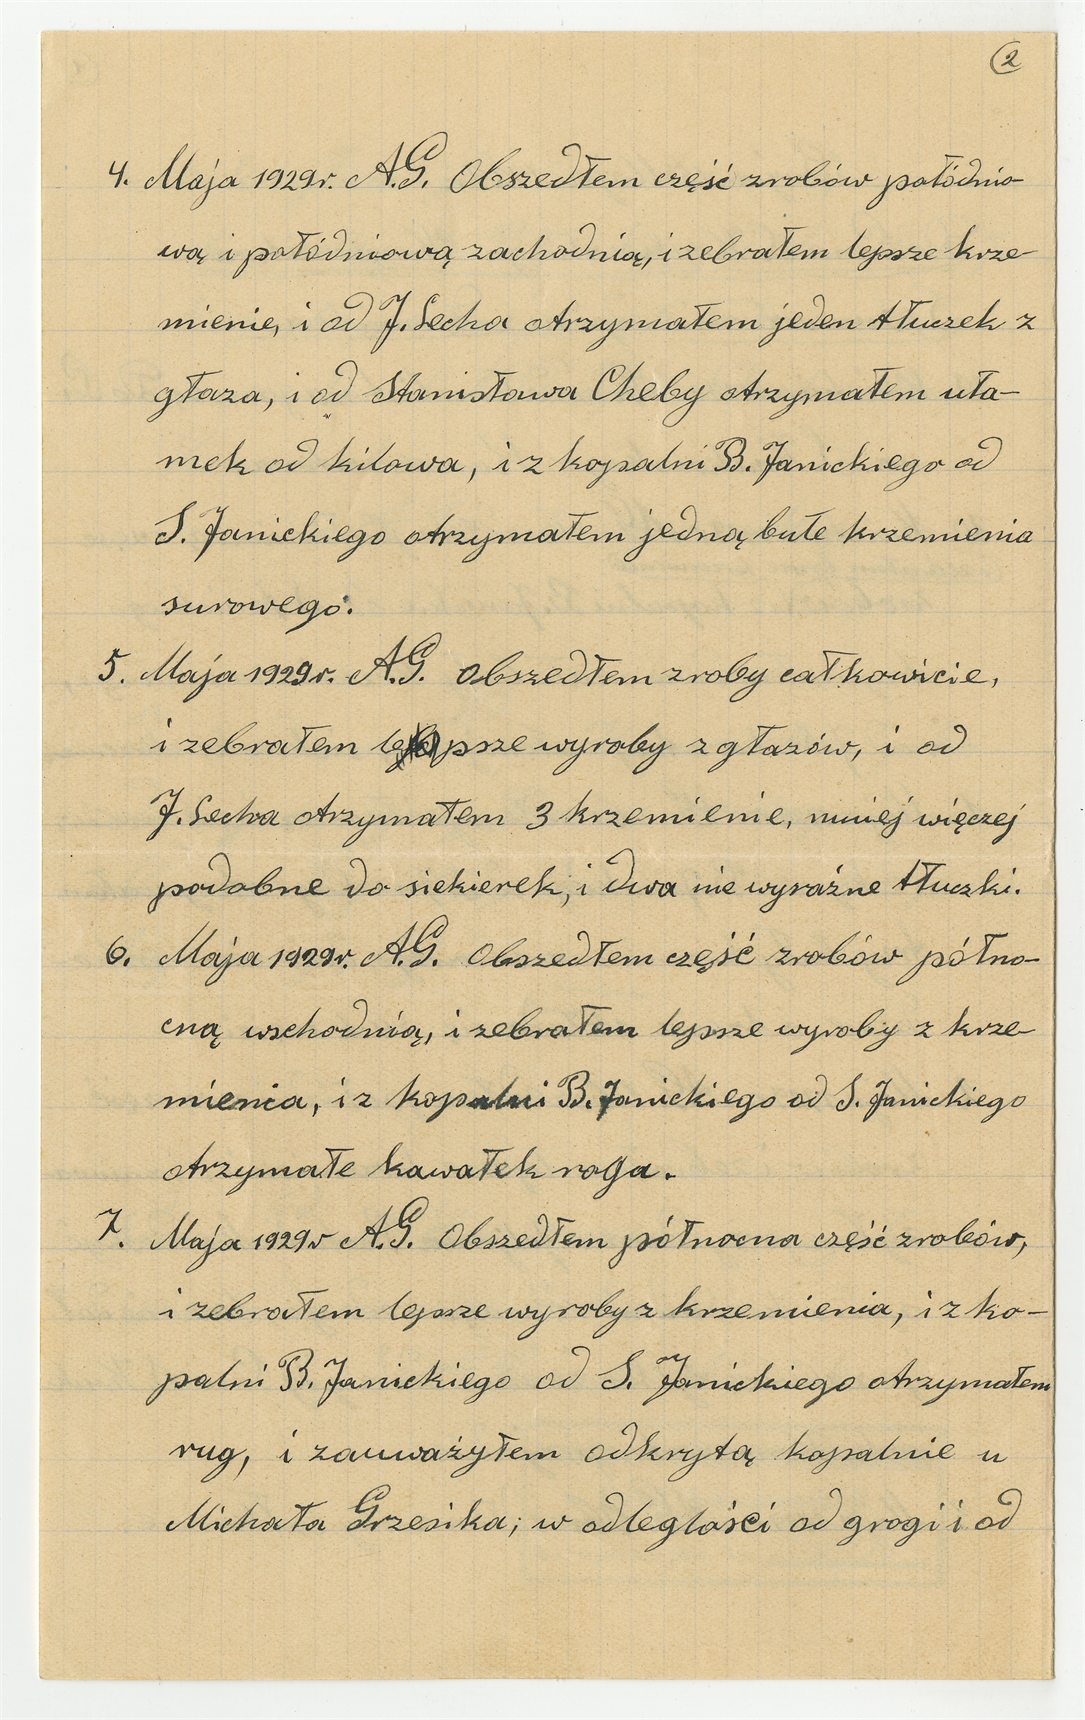 2
4. Maja 1929r. A.G. Obszedłem część zrobów połódnio-
wą i połódniową zachodnią, i zebrałem lepsze krze-
mienie, i od J. Lecha otrzymałem jeden tłuczek z
głaza, i od Stanisława Cheby otrzymałem uła-
mek od kilowa, i z kopalni B. Janickiego od
S. Janickiego otrzymałem jedną bułe krzemienia
surowego.
5. Maja 1929r. A.G. Obszedłem zroby całkowicie,
i zebrałem lepsze wyroby z głazów, i od
J. Lecha otrzymałem 3 krzemienie, mniej więczej
podobne do siekierek, i dwa nie wyraźne tłuczki.
6. Maja 1929r. A.G. Obszedłem część zrobów półno-
cną wschodnią, i zebrałem lepsze wyroby z krze-
mienia, i z kopalni B. Janickiego od S. Janickiego
otrzymałe kawałek roga.
7. Maja 1929r A.G. Obszedłem północna część zrobów,
i zebrałem lepsze wyroby z krzemienia, i z ko-
palni B. Janickiego od S. Janickiego otrzymałem
rug, i zauważyłem odkrytą kopalnie u
Michała Grzesika; w odległości od grogi i od